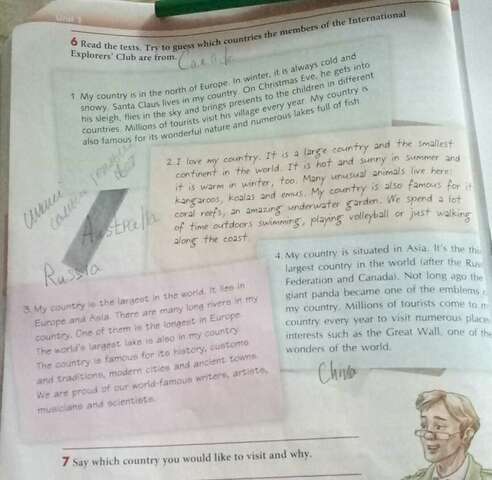 Unit 3
6 Read the texts. Try to guess which countries the members of the International
Explorers' Club are from.
1 My country is in the north of Europe. In winter, it is always cold and
snowy. Santa Claus lives in my country. On Christmas Eve, he gets into
his sleigh, flies in the sky and brings presents to the children in different
countries. Millions of tourists visit his village every year. My country is
also famous for its wonderful nature and numerous lakes full of fish.
2. I love my country. It is a large country and the smallest
continent in the world. It is hot and sunny in summer and
it is warm in winter, too. Many unusual animals live here:
kangaroos, koalas and emus. My country is also famous for it
coral reefs, an amazing underwater garden. We spend a lot
of time outdoors swimming, playing volleyball or just walking
along the coast.
Australia
Russia
3. My country is the largest in the world. It lies in
Europe and Asia. There are many long rivers in my
country. One of them is the longest in Europe.
The world's largest lake is also in my country.
The country is famous for its history, customs
and traditions, modern cities and ancient towns.
We are proud of our world-famous writers, artists,
musicians and scientists.
4. My country is situated in Asia. It's the thi
largest country in the world (after the Rus
Federation and Canada). Not long ago the
giant panda became one of the emblems
my country. Millions of tourists come to m
country every year to visit numerous place
interests such as the Great Wall, one of the
wonders of the world.
China
7 Say which country you would like to visit and why.